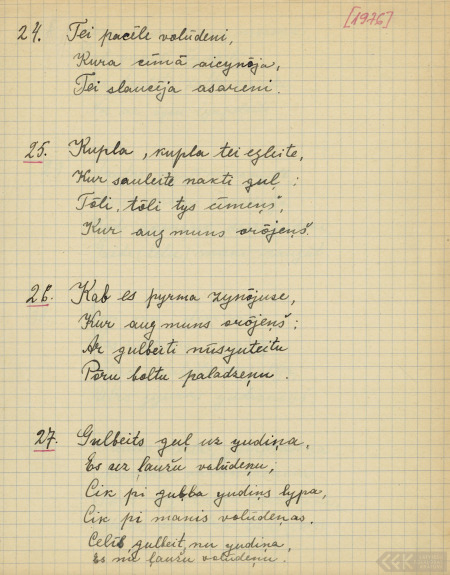 [1976]
24. Tei pacēle volūdeni,
Kura cīmā aicynōja,
Tei slaucīja asareni.
25. Kupla, kupla tei egleite,
Kur sauleite nakti guļ;
Tōli, tōli tys cīmeņš,
Kur aug muns orōjeņš.
26. Kab es pyrma zynōjuse,
Kur aug muns orōjeņš:
Ar gulbeiti nūsyuteitu
Pōru boltu paladzeņu.
27. Gulbeits guļ uz yudiņa,
Es uz ļaužu volūdeņu;
Cik pi guļba yudiņs lypa,
Cik pi manis volūdeņas.
Celīs, gulbeit, nu yudiņa,
Es nu ļaužu volūdeņu.